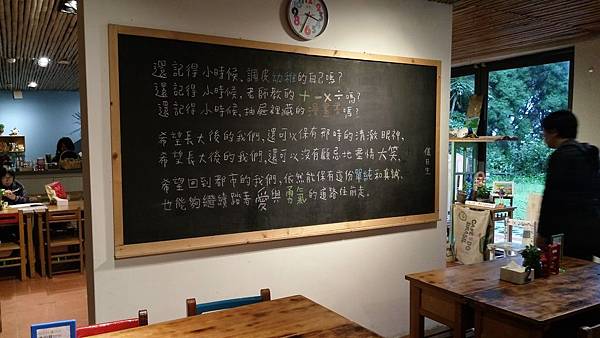 還記得小時候、調皮幼稚的自己嗎？
還記得小時候、老師教的＋－×÷嗎？
還記得小時候、抽屜裡藏的漫畫書嗎？
希望長大後的我們，還可以保有那時的清澈眼神、
希望長大後的我們，還可以沒有顧忌地盡情大笑、
希望回到都市的我們，依然能保有這份單純和真誠、
也能夠繼續踏著愛與勇氣的道路往前走。
值日生